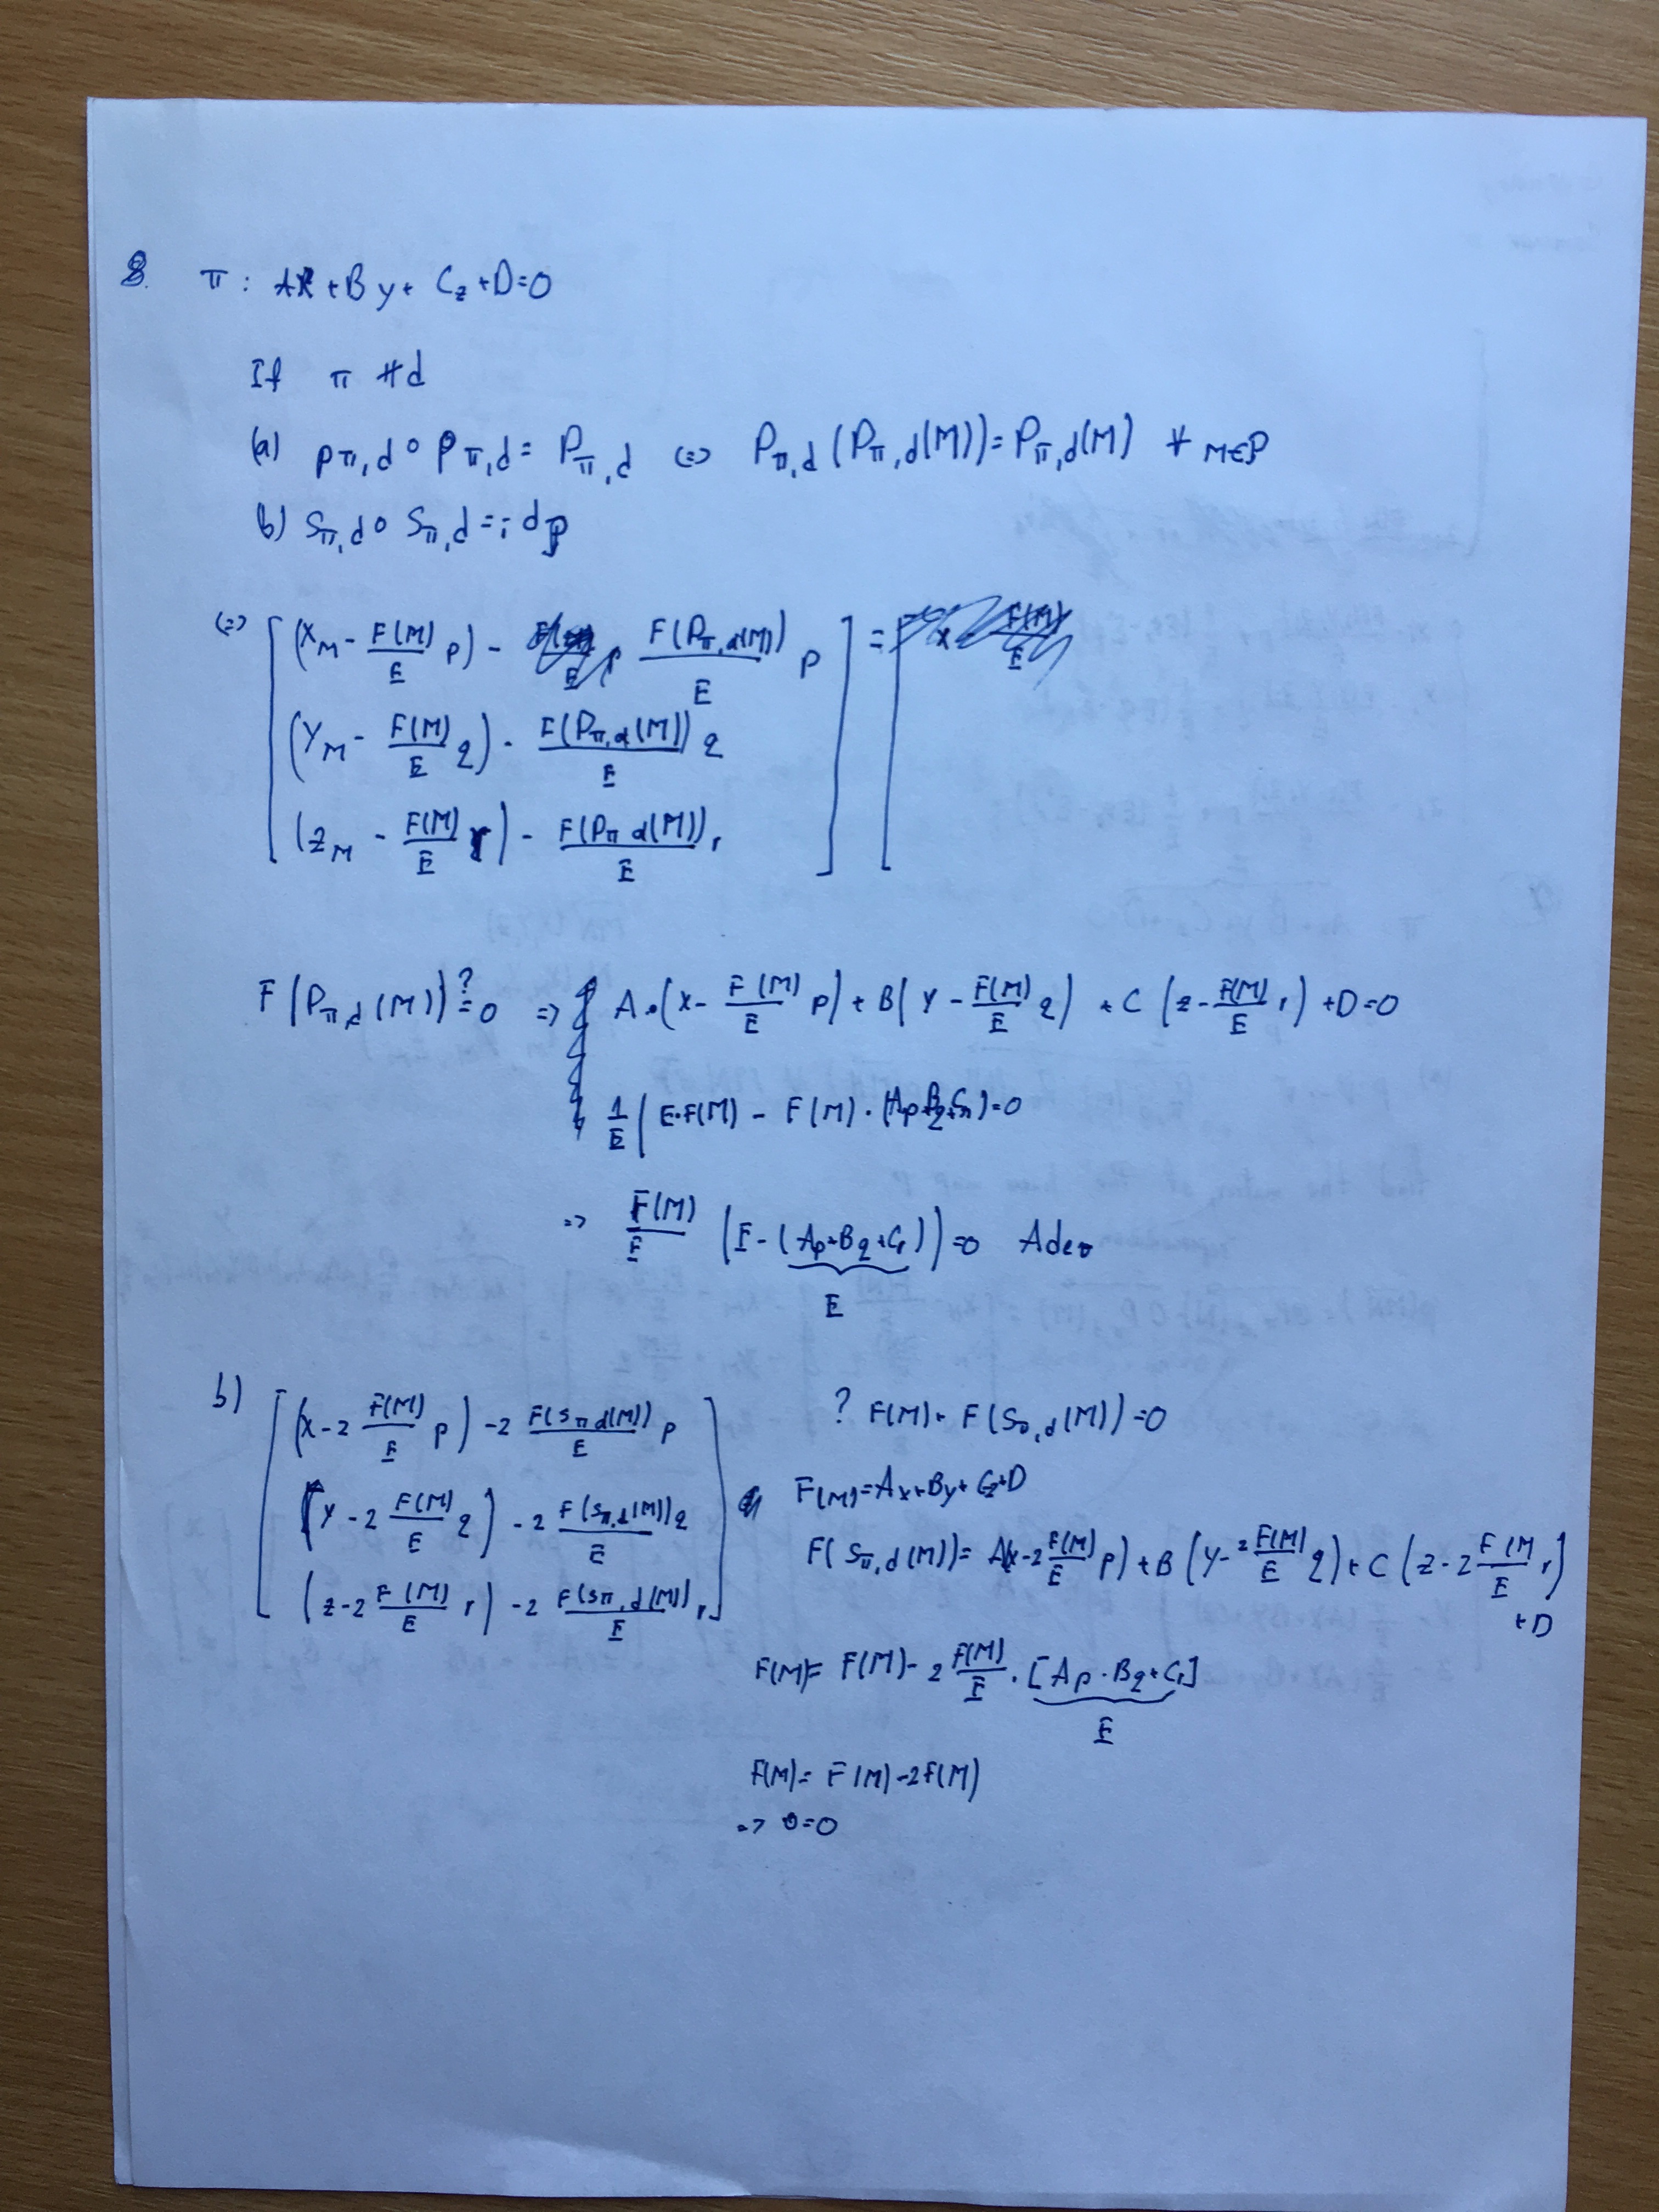 8. π: Ax+By+Cz+D=0
If π ∦ d
(a) pπ,d ∘ pπ,d = Pπ,d (=> Pπ,d (Pπ,d(M)) = Pπ,d(M) ∀ M∈P
b) Sπ,d ∘ Sπ,d = idP
(=> [ (XM - F(M)/E p) - F(Pπ,d(M))/E p ] = [
(YM - F(M)/E q) - F(Pπ,d(M))/E q
(ZM - F(M)/E r) - F(Pπ,d(M))/E r
F(Pπ,d(M)) ?= 0 => A·(x - F(M)/E p) + B(y - F(M)/E q) + C(z - F(M)/E r) + D=0
1/E (E·F(M) - F(M)·(Ap+Bq+Cr)=0
=> F(M)/E (E-(Ap+Bq+Cr))=0 Adev
E
b) [ (x-2 F(M)/E p) -2 F(Sπ,d(M))/E p ] ? F(M)+F(Sπ,d(M))=0
(y-2 F(M)/E q) -2 F(Sπ,d(M))/E q F(M)=Ax+By+Cz+D
(z-2 F(M)/E r) -2 F(Sπ,d(M))/E r F(Sπ,d(M))= A(x-2 F(M)/E p)+B(y-2 F(M)/E q)+C(z-2 F(M)/E r)
+D
F(M)= F(M)-2 F(M)/E·[Ap·Bq+Cr]
E
F(M)= F(M)-2F(M)
=> 0=0